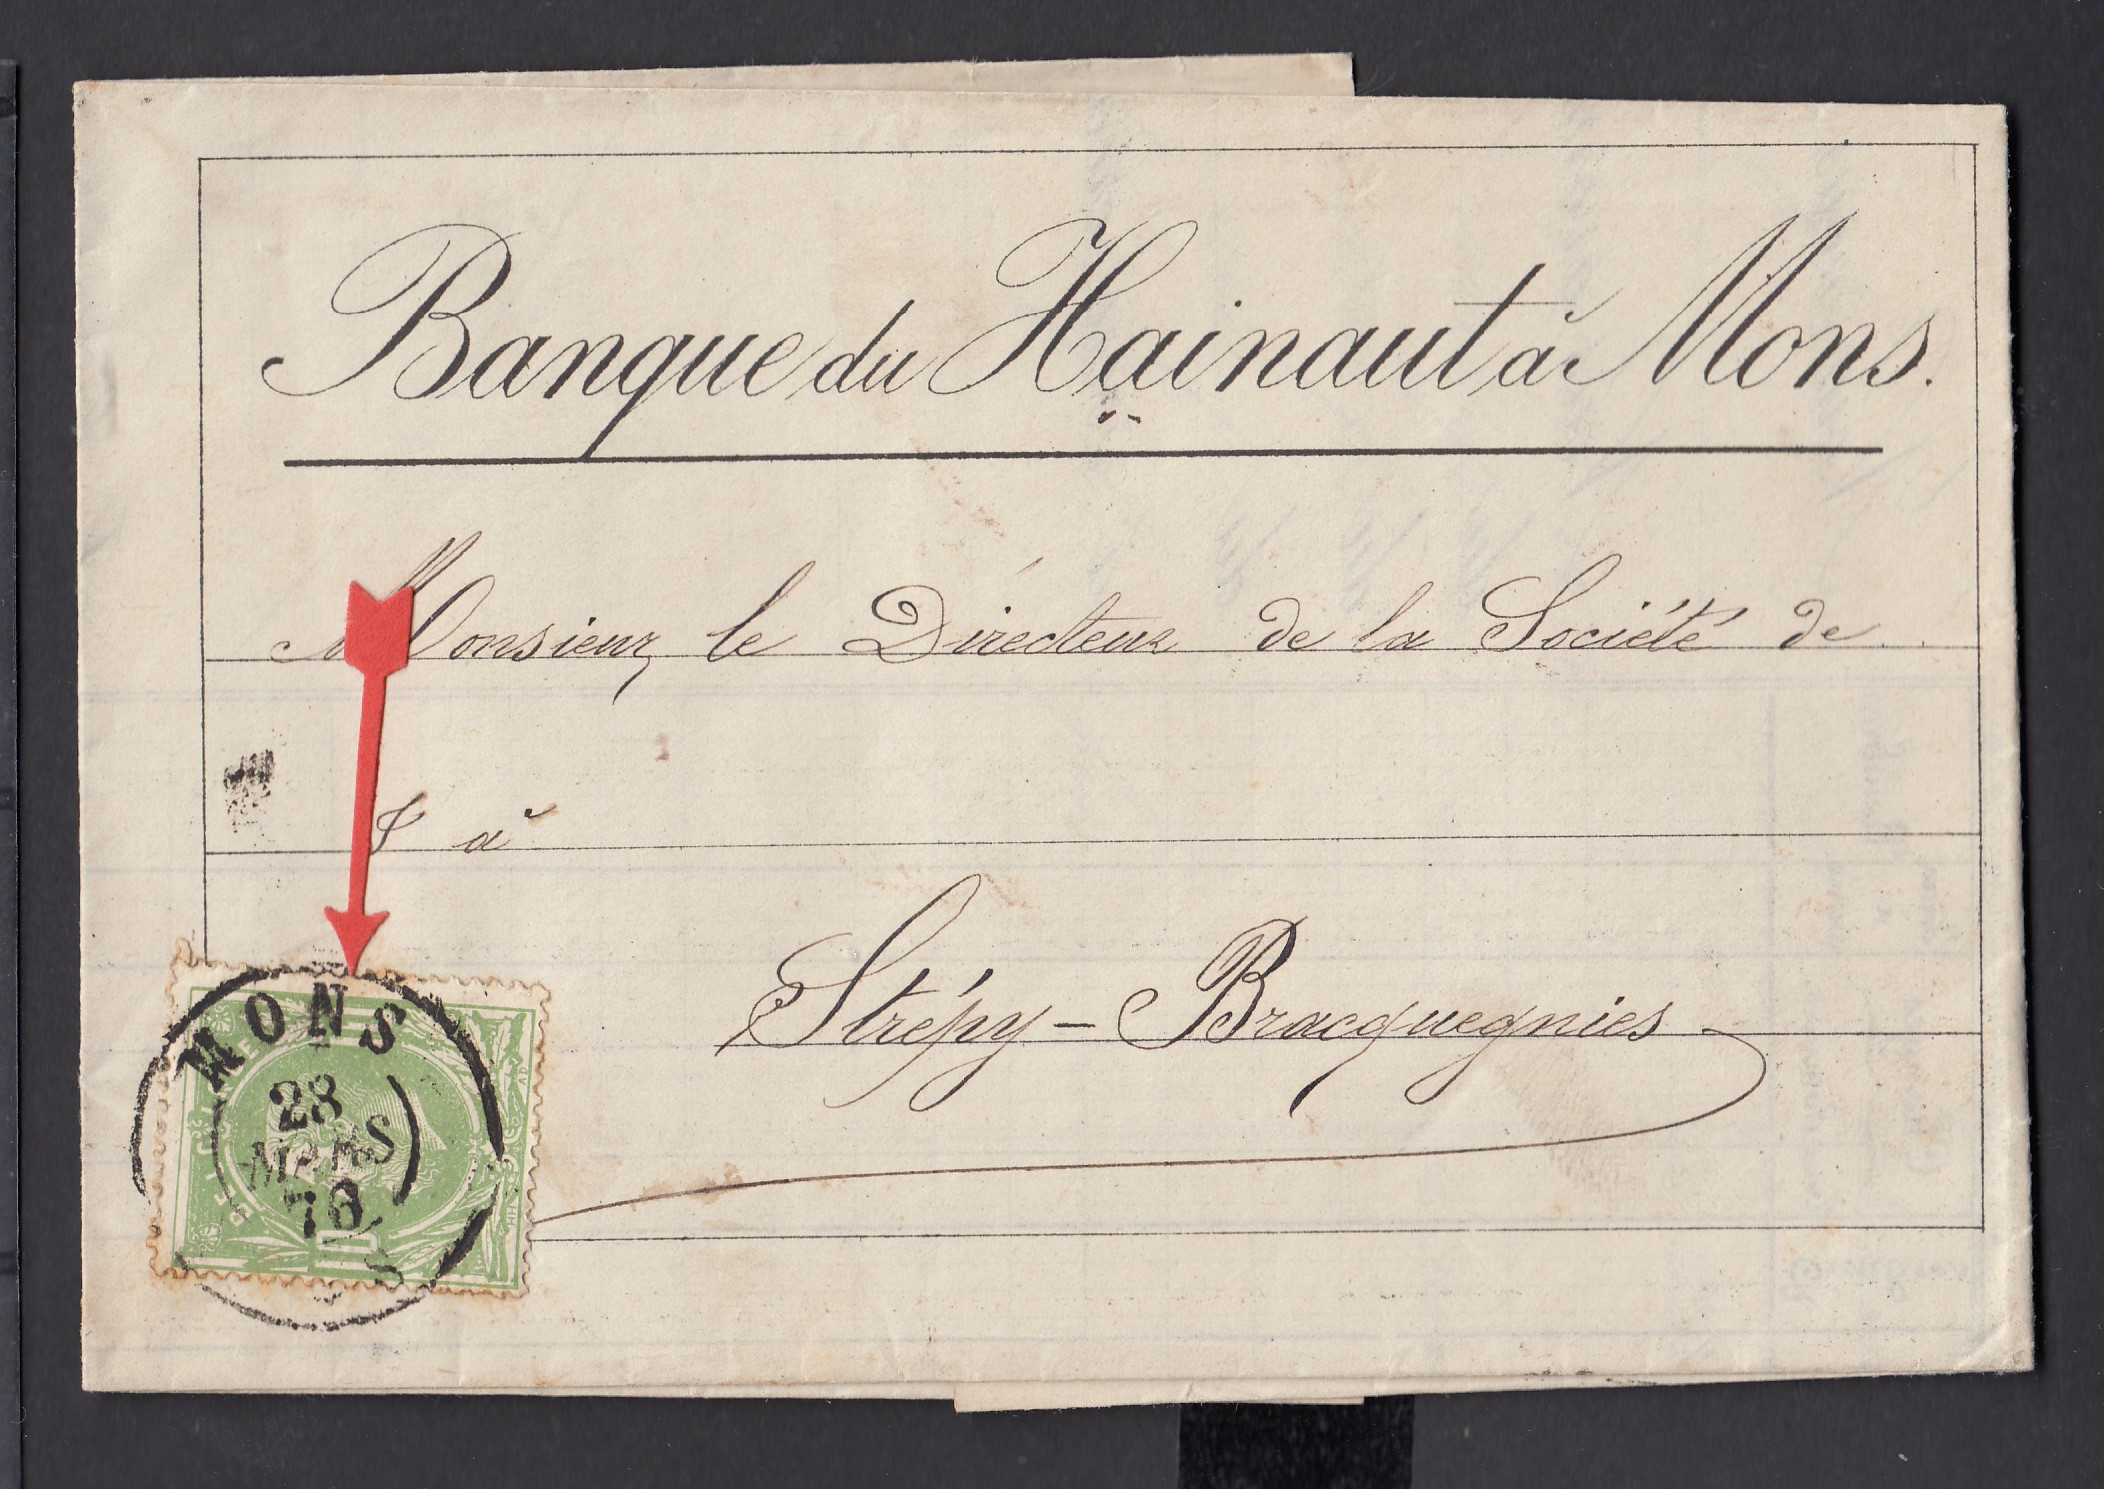 Banque du Hainaut à Mons.
Monsieur le Directeur de la Société de
& à
Strépy-Bracquegnies
MONS
28
MARS
76